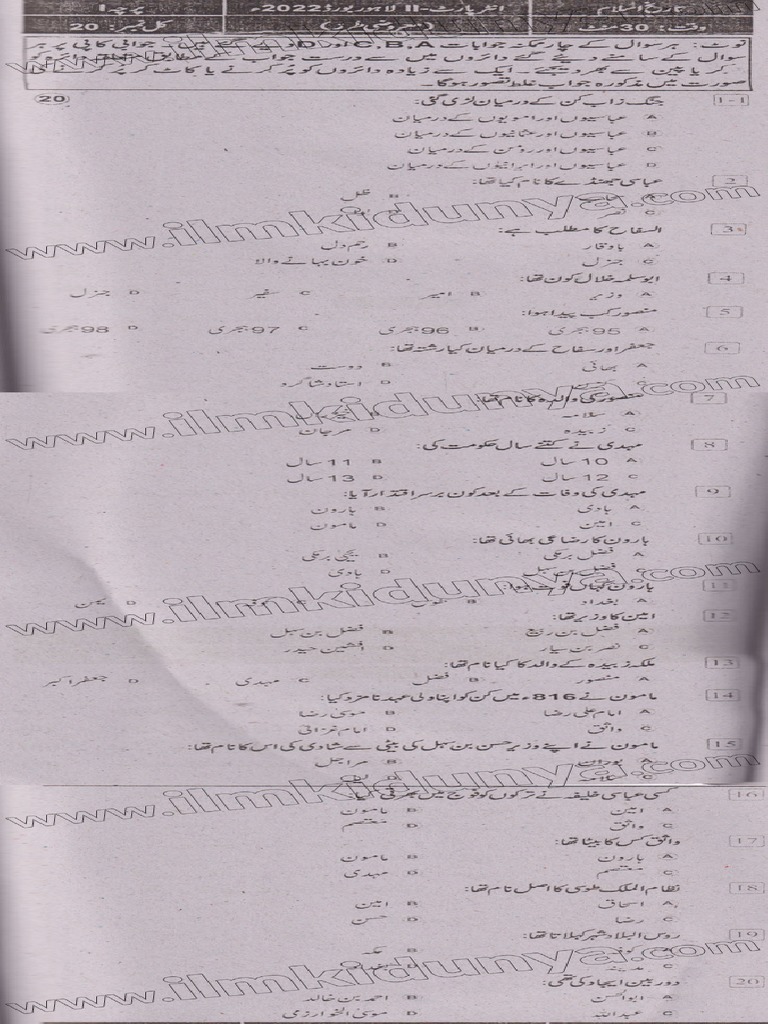 تاریخ اسلام انٹر پارٹ-II لاہور بورڈ 2022ء پرچہ I
وقت: 30 منٹ (معروضی طرز) کل نمبر: 20
نوٹ: ہر سوال کے چار ممکنہ جوابات C،B،A اور D دیے گئے ہیں۔ جوابی کاپی پر ہر
سوال کے سامنے دیئے گئے دائروں میں سے درست جواب کے مطابق
کر یا پین سے بھر دیجئے۔ ایک سے زیادہ دائروں کو پُر کرنے یا کاٹ کر پُر
صورت میں مذکورہ جواب غلط تصور ہوگا۔
1-1 جنگ زاب کن کے درمیان لڑی گئی: 20
A عباسیوں اور امویوں کے درمیان
B عباسیوں اور عثمانیوں کے درمیان
C عباسیوں اور رومن کے درمیان
D عباسیوں اور ایرانیوں کے درمیان
2 عباسی جھنڈے کا نام کیا تھا:
A B ظل
C نصر D
www.ilmkidunya.com
3 السفاح کا مطلب ہے:
A باوقار B رحم دل
C جنرل D خون بہانے والا
4 ابوسلمہ خلال کون تھا:
A وزیر B امیر C سفیر D جنرل
5 منصور کب پیدا ہوا:
A 95 ہجری B 96 ہجری C 97 ہجری D 98 ہجری
6 جعفر اور سفاح کے درمیان کیا رشتہ تھا:
A بھائی B دوست
D استاد شاگرد
www.ilmkidunya.com
7 منصور کی والدہ کا نام تھا:
A سلامہ B
C زبیدہ D مرجان
8 مہدی نے کتنے سال حکومت کی:
A 10 سال B 11 سال
C 12 سال D 13 سال
9 مہدی کی وفات کے بعد کون برسر اقتدار آیا:
A ہادی B ہارون
C امین D مامون
10 ہارون کا رضاعی بھائی تھا:
A فضل برمکی B یحییٰ برمکی
C فضل بن سہل D ہادی
www.ilmkidunya.com
11 ہارون کہاں فوت ہوا:
A بغداد B طوس C D یمن
12 امین کا وزیر تھا:
A فضل بن ربیع B فضل بن سہل
C نصر بن سیار D افشین حیدر
13 ملکہ زبیدہ کے والد کا کیا نام تھا:
A منصور B فضل C مہدی D جعفر اکبر
14 مامون نے 816ء میں کن کو اپنا ولی عہد نامزد کیا:
A امام علی رضا B موسیٰ رضا
C واثق D امام غزالی
15 مامون نے اپنے وزیر حسن بن سہل کی بیٹی سے شادی کی اس کا نام تھا:
A بوران B مراجل
C سلامہ D
www.ilmkidunya.com
16 کسی عباسی خلیفہ نے ترکوں کو فوج میں بھرتی کیا:
A امین B مامون
C واثق D معتصم
17 واثق کس کا بیٹا تھا:
A ہارون B مامون
C معتصم D مہدی
18 نظام الملک طوسی کا اصل نام تھا:
A اسحاق B امین
C رضا D حسن
19 روس البلاد شہر کہلاتا تھا:
A کوفہ B مکہ
C مدینہ D بغداد
www.ilmkidunya.com
20 دوربین ایجاد کی تھی:
A ابوالحسن B احمد بن خالد
C عبداللہ D موسیٰ الخوارزمی